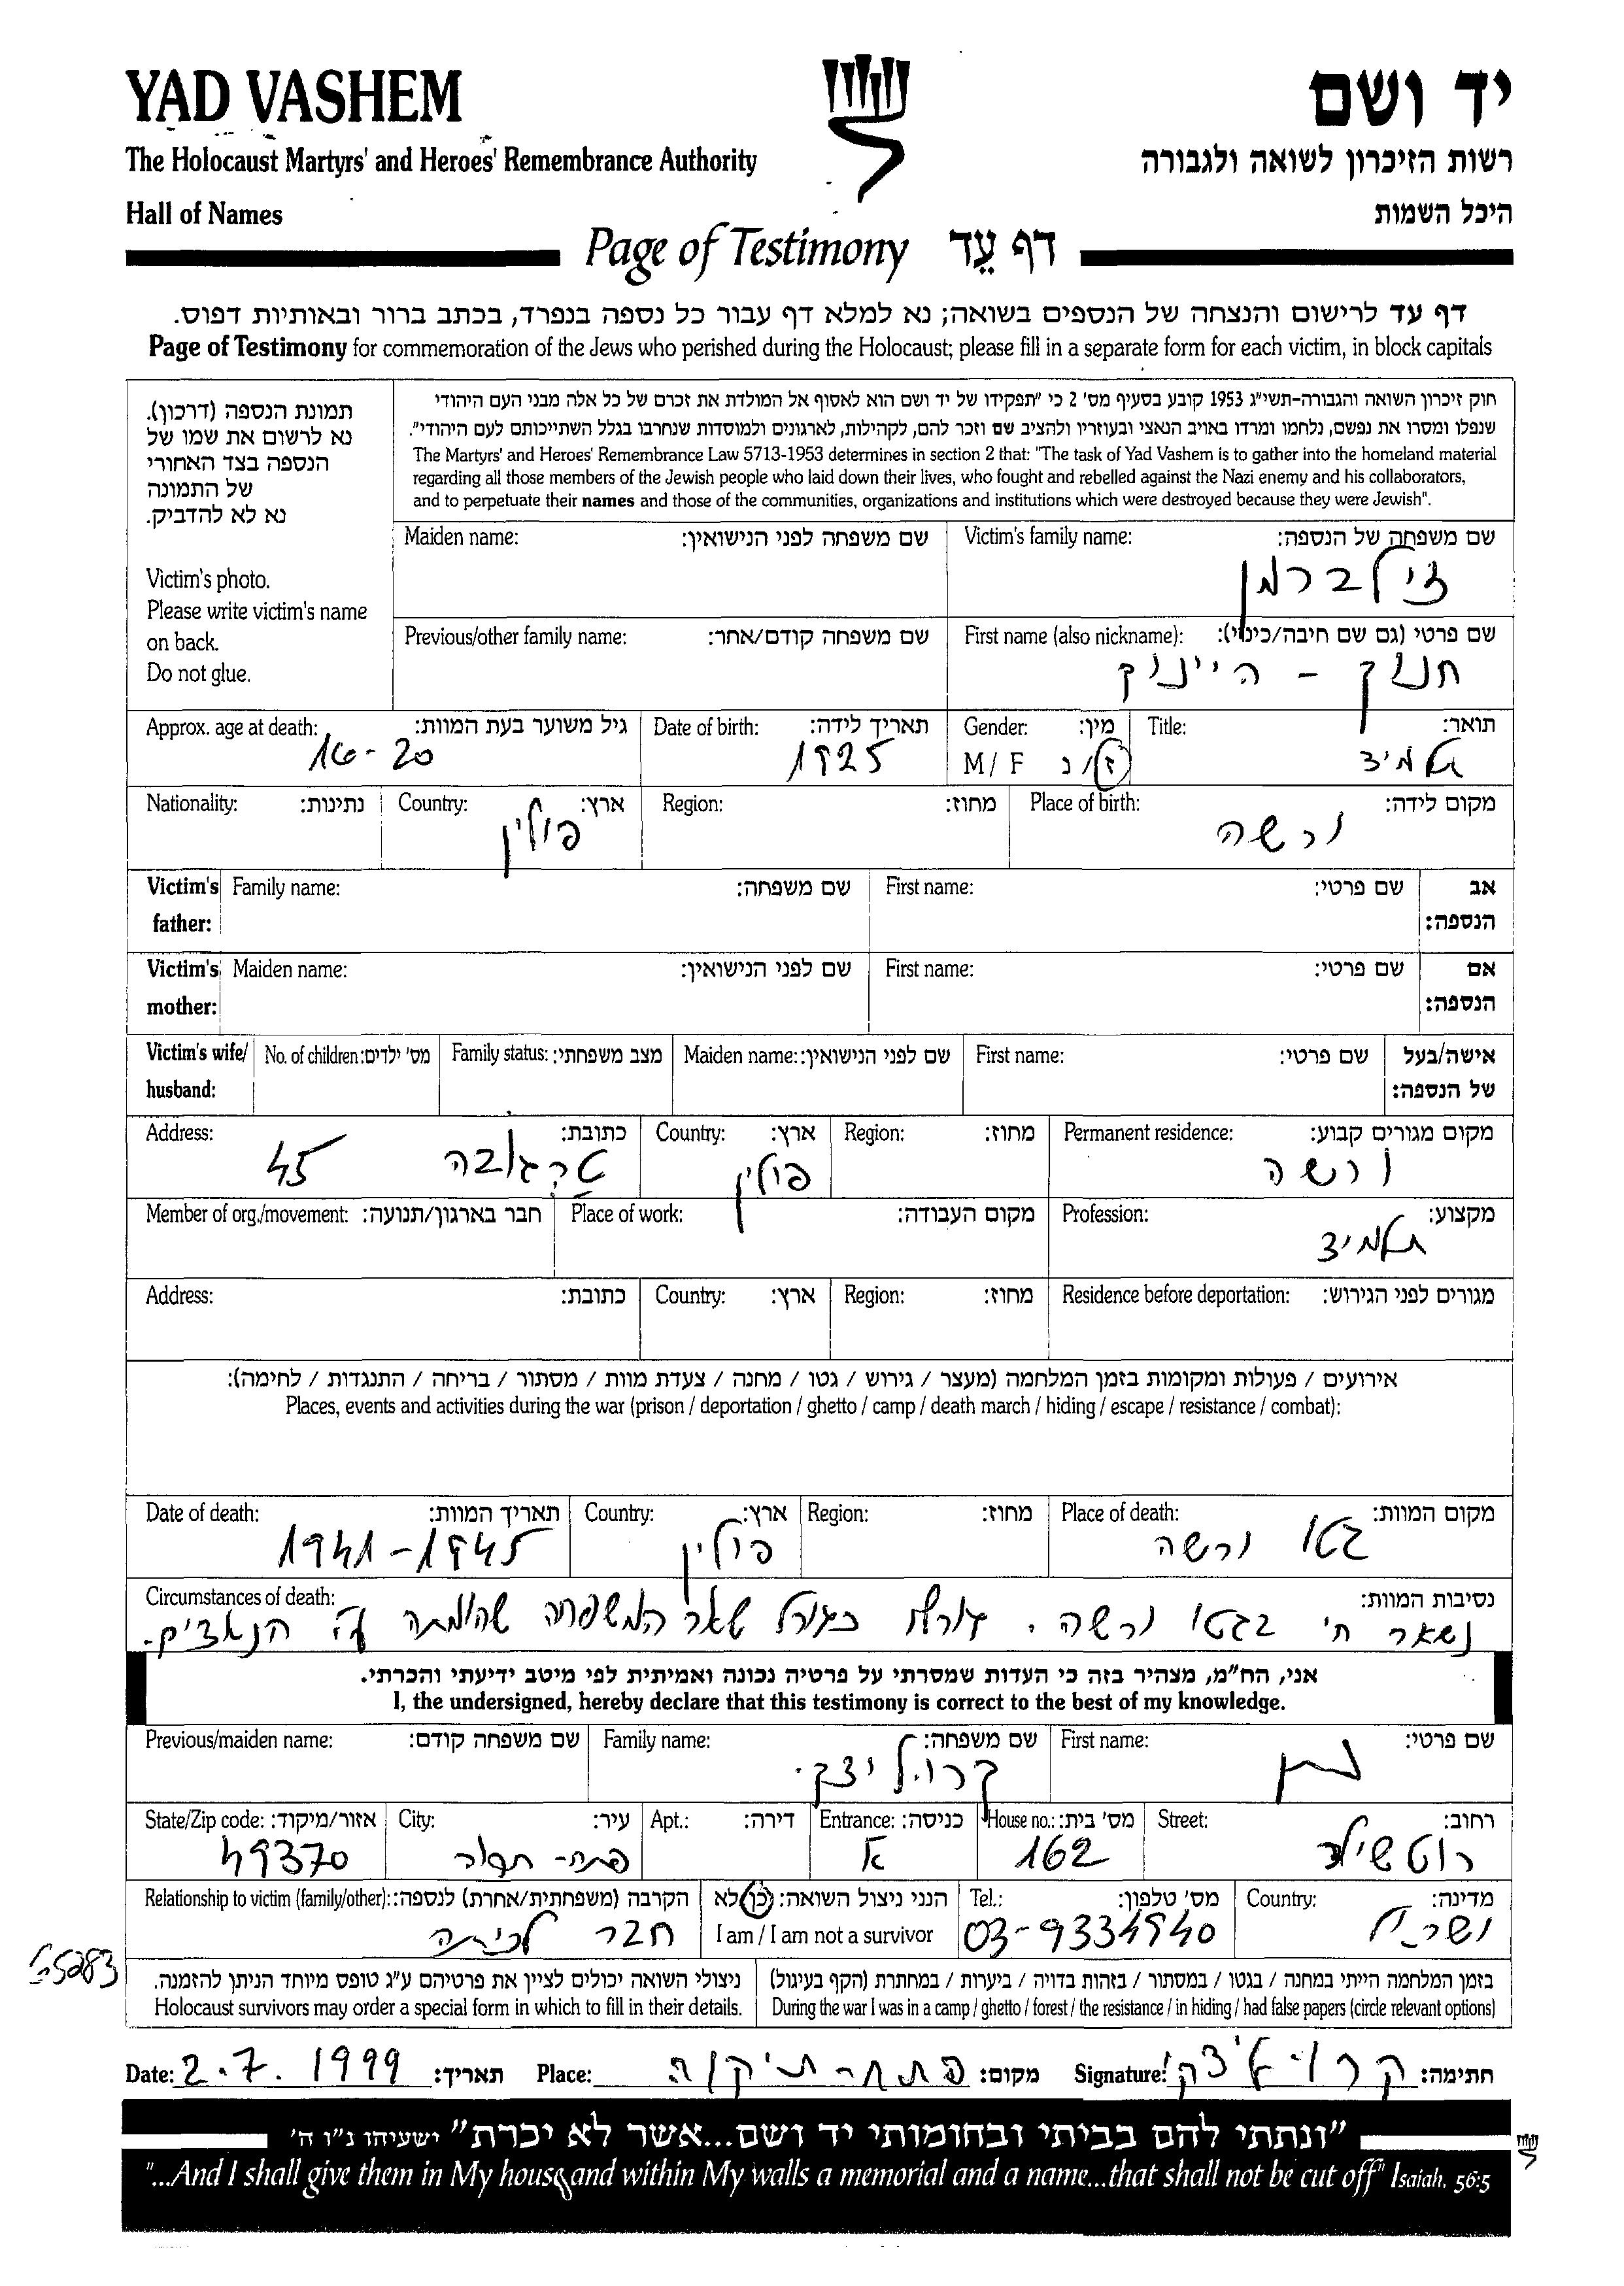 YAD VASHEM
יד ושם
The Holocaust Martyrs' and Heroes' Remembrance Authority
רשות הזיכרון לשואה ולגבורה
Hall of Names
היכל השמות
Page of Testimony דף עֵד
דף עד לרישום והנצחה של הנספים בשואה; נא למלא דף עבור כל נספה בנפרד, בכתב ברור ובאותיות דפוס.
Page of Testimony for commemoration of the Jews who perished during the Holocaust; please fill in a separate form for each victim, in block capitals
תמונת הנספה (דרכון).
נא לרשום את שמו של
הנספה בצד האחורי
של התמונה
נא לא להדביק.
Victim's photo.
Please write victim's name
on back.
Do not glue.
חוק זיכרון השואה והגבורה-תשי"ג 1953 קובע בסעיף מס' 2 כי "תפקידו של יד ושם הוא לאסוף אל המולדת את זכרם של כל אלה מבני העם היהודי
שנפלו ומסרו את נפשם, נלחמו ומרדו באויב הנאצי ובעוזריו ולהציב שם וזכר להם, לקהילות, לארגונים ולמוסדות שנחרבו בגלל השתייכותם לעם היהודי".
The Martyrs' and Heroes' Remembrance Law 5713-1953 determines in section 2 that: "The task of Yad Vashem is to gather into the homeland material
regarding all those members of the Jewish people who laid down their lives, who fought and rebelled against the Nazi enemy and his collaborators,
and to perpetuate their names and those of the communities, organizations and institutions which were destroyed because they were Jewish".
Maiden name: שם משפחה לפני הנישואין: Victim's family name: שם משפחה של הנספה:
זילברמן
Previous/other family name: שם משפחה קודם/אחר: First name (also nickname): שם פרטי (גם שם חיבה/כינוי):
חנוך - הייניך
Approx. age at death: גיל משוער בעת המוות: Date of birth: תאריך לידה: Gender: מין: Title: תואר:
16-20 1925 M / F ז/נ תלמיד
Nationality: נתינות: Country: ארץ: Region: מחוז: Place of birth: מקום לידה:
פולין ורשה
Victim's Family name: שם משפחה: First name: שם פרטי: אב
father: הנספה:
Victim's Maiden name: שם לפני הנישואין: First name: שם פרטי: אם
mother: הנספה:
Victim's wife/ No. of children: מס' ילדים: Family status: מצב משפחתי: Maiden name: שם לפני הנישואין: First name: שם פרטי: אישה/בעל
husband: של הנספה:
Address: כתובת: Country: ארץ: Region: מחוז: Permanent residence: מקום מגורים קבוע:
45 פולין ורשה
Member of org./movement: חבר בארגון/תנועה: Place of work: מקום העבודה: Profession: מקצוע:
תלמיד
Address: כתובת: Country: ארץ: Region: מחוז: Residence before deportation: מגורים לפני הגירוש:
אירועים / פעולות ומקומות בזמן המלחמה (מעצר / גירוש / גטו / מחנה / צעדת מוות / מסתור / בריחה / התנגדות / לחימה):
Places, events and activities during the war (prison / deportation / ghetto / camp / death march / hiding / escape / resistance / combat):
Date of death: תאריך המוות: Country: ארץ: Region: מחוז: Place of death: מקום המוות:
1941-1945 פולין גטו ורשה
Circumstances of death: נסיבות המוות:
נשאר חי בגטו ורשה. גורלו כגורל שאר המשפחה שהומתה ע"י הנאצים.
אני, הח"מ, מצהיר בזה כי העדות שמסרתי על פרטיה נכונה ואמיתית לפי מיטב ידיעתי והכרתי.
I, the undersigned, hereby declare that this testimony is correct to the best of my knowledge.
Previous/maiden name: שם משפחה קודם: Family name: שם משפחה: First name: שם פרטי:
קרוליצקי
State/Zip code: אזור/מיקוד: City: עיר: Apt.: דירה: Entrance: כניסה: House no.: מס' בית: Street: רחוב:
49370 פתח-תקוה א 162 רוטשילד
Relationship to victim (family/other): הקרבה (משפחתית/אחרת) לנספה: הנני ניצול השואה: כן/לא Tel.: מס' טלפון: Country: מדינה:
חבר לכיתה I am / I am not a survivor 03-9334940 ישראל
בזמן המלחמה הייתי במחנה / בגטו / במסתור / בזהות בדויה / ביערות / במחתרת (הקף בעיגול)
During the war I was in a camp / ghetto / forest / the resistance / in hiding / had false papers (circle relevant options)
ניצולי השואה יכולים לציין את פרטיהם ע"ג טופס מיוחד הניתן להזמנה.
Holocaust survivors may order a special form in which to fill in their details.
Date: 2.7.1999 תאריך: Place: פתח-תיקוה מקום: Signature: חתימה:
"ונתתי להם בביתי ובחומותי יד ושם...אשר לא יכרת" ישעיהו נ"ו ה'
"...And I shall give them in My house and within My walls a memorial and a name...that shall not be cut off" Isaiah, 56:5